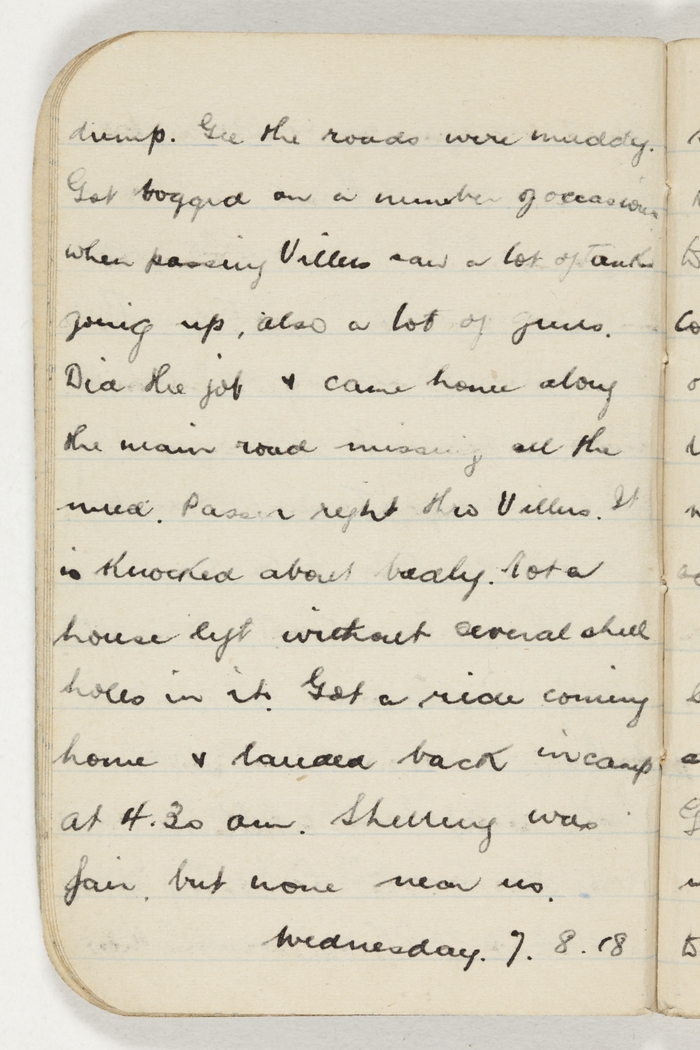 dump. Gee the roads were muddy.
Got bogged on a number of occasions
when passing Villers saw a lot of tanks
going up, also a lot of guns.
Did the job & came home along
the main road missing all the
mud. Passed right thro Villers. It
is knocked about badly. Not a
house left without several shell
holes in it. Got a ride coming
home & landed back in camp
at 4.30 am. Shelling was
fair, but none near us.
Wednesday. 7. 8. 18